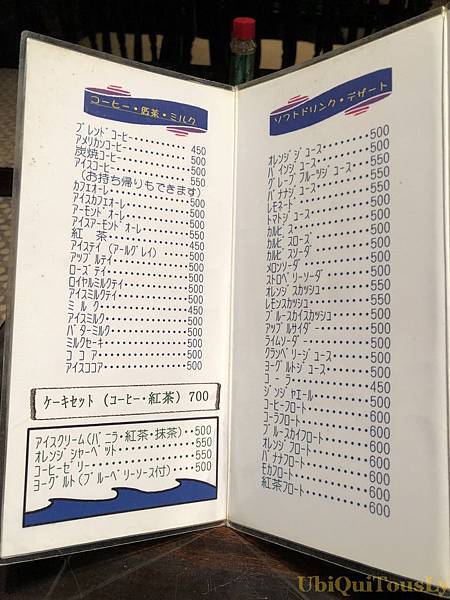 コーヒー・紅茶・ミルク
ブレンドコーヒー・・・・・・・・450
アメリカンコーヒー・・・・・・・450
炭焼コーヒー・・・・・・・・・・500
アイスコーヒー・・・・・・・・・450
(お持ち帰りもできます)
カフェオーレ・・・・・・・・・・500
アイスカフェオーレ・・・・・・・500
アーモンドオーレ・・・・・・・・500
アイスアーモンドオーレ・・・・・550
紅　茶・・・・・・・・・・・・・450
アイステイ(アールグレイ)・・・・450
アップルテイ・・・・・・・・・・500
ローズテイ・・・・・・・・・・・500
ロイヤルミルクテイ・・・・・・・500
アイスミルクテイ・・・・・・・・500
ミルク・・・・・・・・・・・・・450
アイスミルク・・・・・・・・・・500
バターミルク・・・・・・・・・・500
ミルクセーキ・・・・・・・・・・500
ココア・・・・・・・・・・・・・500
アイスココア・・・・・・・・・・500
ケーキセット(コーヒー・紅茶)700
アイスクリーム(バニラ・紅茶・抹茶)・・500
オレンジシャーベット・・・・・・550
コーヒーゼリー・・・・・・・・・550
ヨーグルト(ブルーベリーソース付)・・・500
ソフトドリンク・デザート
オレンジジュース・・・・・・・・500
パインジュース・・・・・・・・・500
グレープフルーツジュース・・・・550
バナナジュース・・・・・・・・・550
レモネード・・・・・・・・・・・550
トマトジュース・・・・・・・・・500
カルピス・・・・・・・・・・・・500
カルピスローズ・・・・・・・・・500
カルピスソーダ・・・・・・・・・500
メロンソーダ・・・・・・・・・・500
ストロベリーソーダ・・・・・・・500
オレンジスカッシュ・・・・・・・550
レモンスカッシュ・・・・・・・・550
ブルースカイスカッシュ・・・・・500
アップルサイダ・・・・・・・・・500
ライムソーダ・・・・・・・・・・500
クランベリージュース・・・・・・500
ヨーグルトジュース・・・・・・・500
コーラ・・・・・・・・・・・・・450
ジンジャエール・・・・・・・・・500
コーヒーフロート・・・・・・・・600
コーラフロート・・・・・・・・・600
ブルースカイフロート・・・・・・600
オレンジフロート・・・・・・・・600
バナナフロート・・・・・・・・・600
モカフロート・・・・・・・・・・600
紅茶フロート・・・・・・・・・・600
UbiQuiTousLy